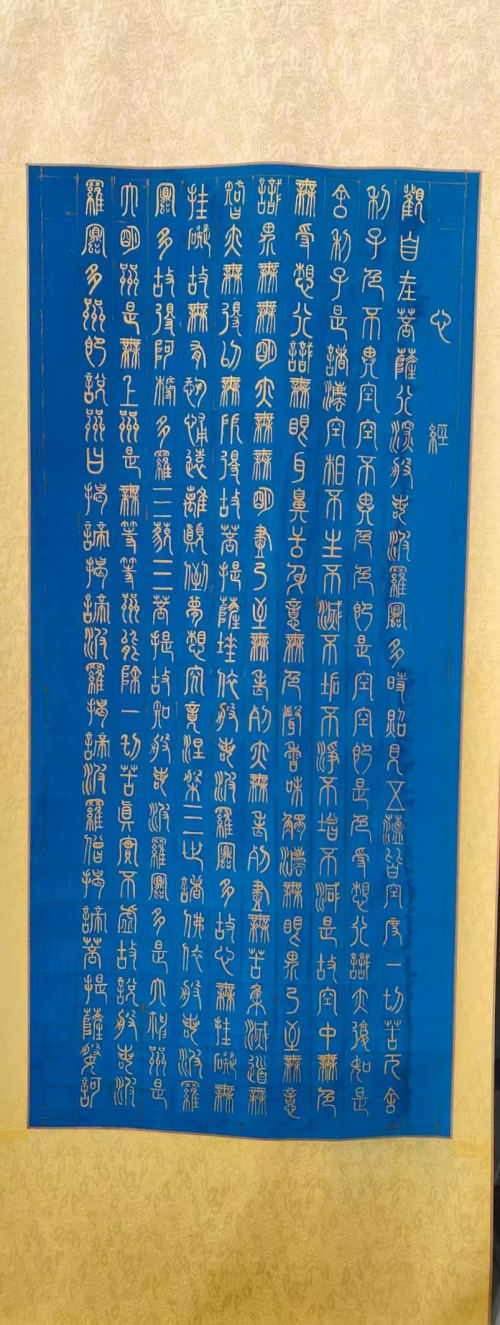 心經
觀自在菩薩行深般若波羅蜜多時照見五蘊皆空度一切苦厄舍
利子色不異空空不異色色即是空空即是色受想行識亦復如是
舍利子是諸灋空相不生不滅不垢不淨不增不減是故空中無色
無受想行識無眼耳鼻舌身意無色聲香味觸灋無眼界乃至無意
識界無無明亦無無明盡乃至無老死亦無老死盡無苦集滅道無
智亦無得以無所得故菩提薩埵依般若波羅蜜多故心無挂礙無
挂礙故無有恐怖遠離顛倒夢想究竟涅槃三世諸佛依般若波羅
蜜多故得阿耨多羅三藐三菩提故知般若波羅蜜多是大神咒是
大明咒是無上咒是無等等咒能除一切苦真實不虛故說般若波
羅蜜多咒即說咒曰揭諦揭諦波羅揭諦波羅僧揭諦菩提薩婆訶